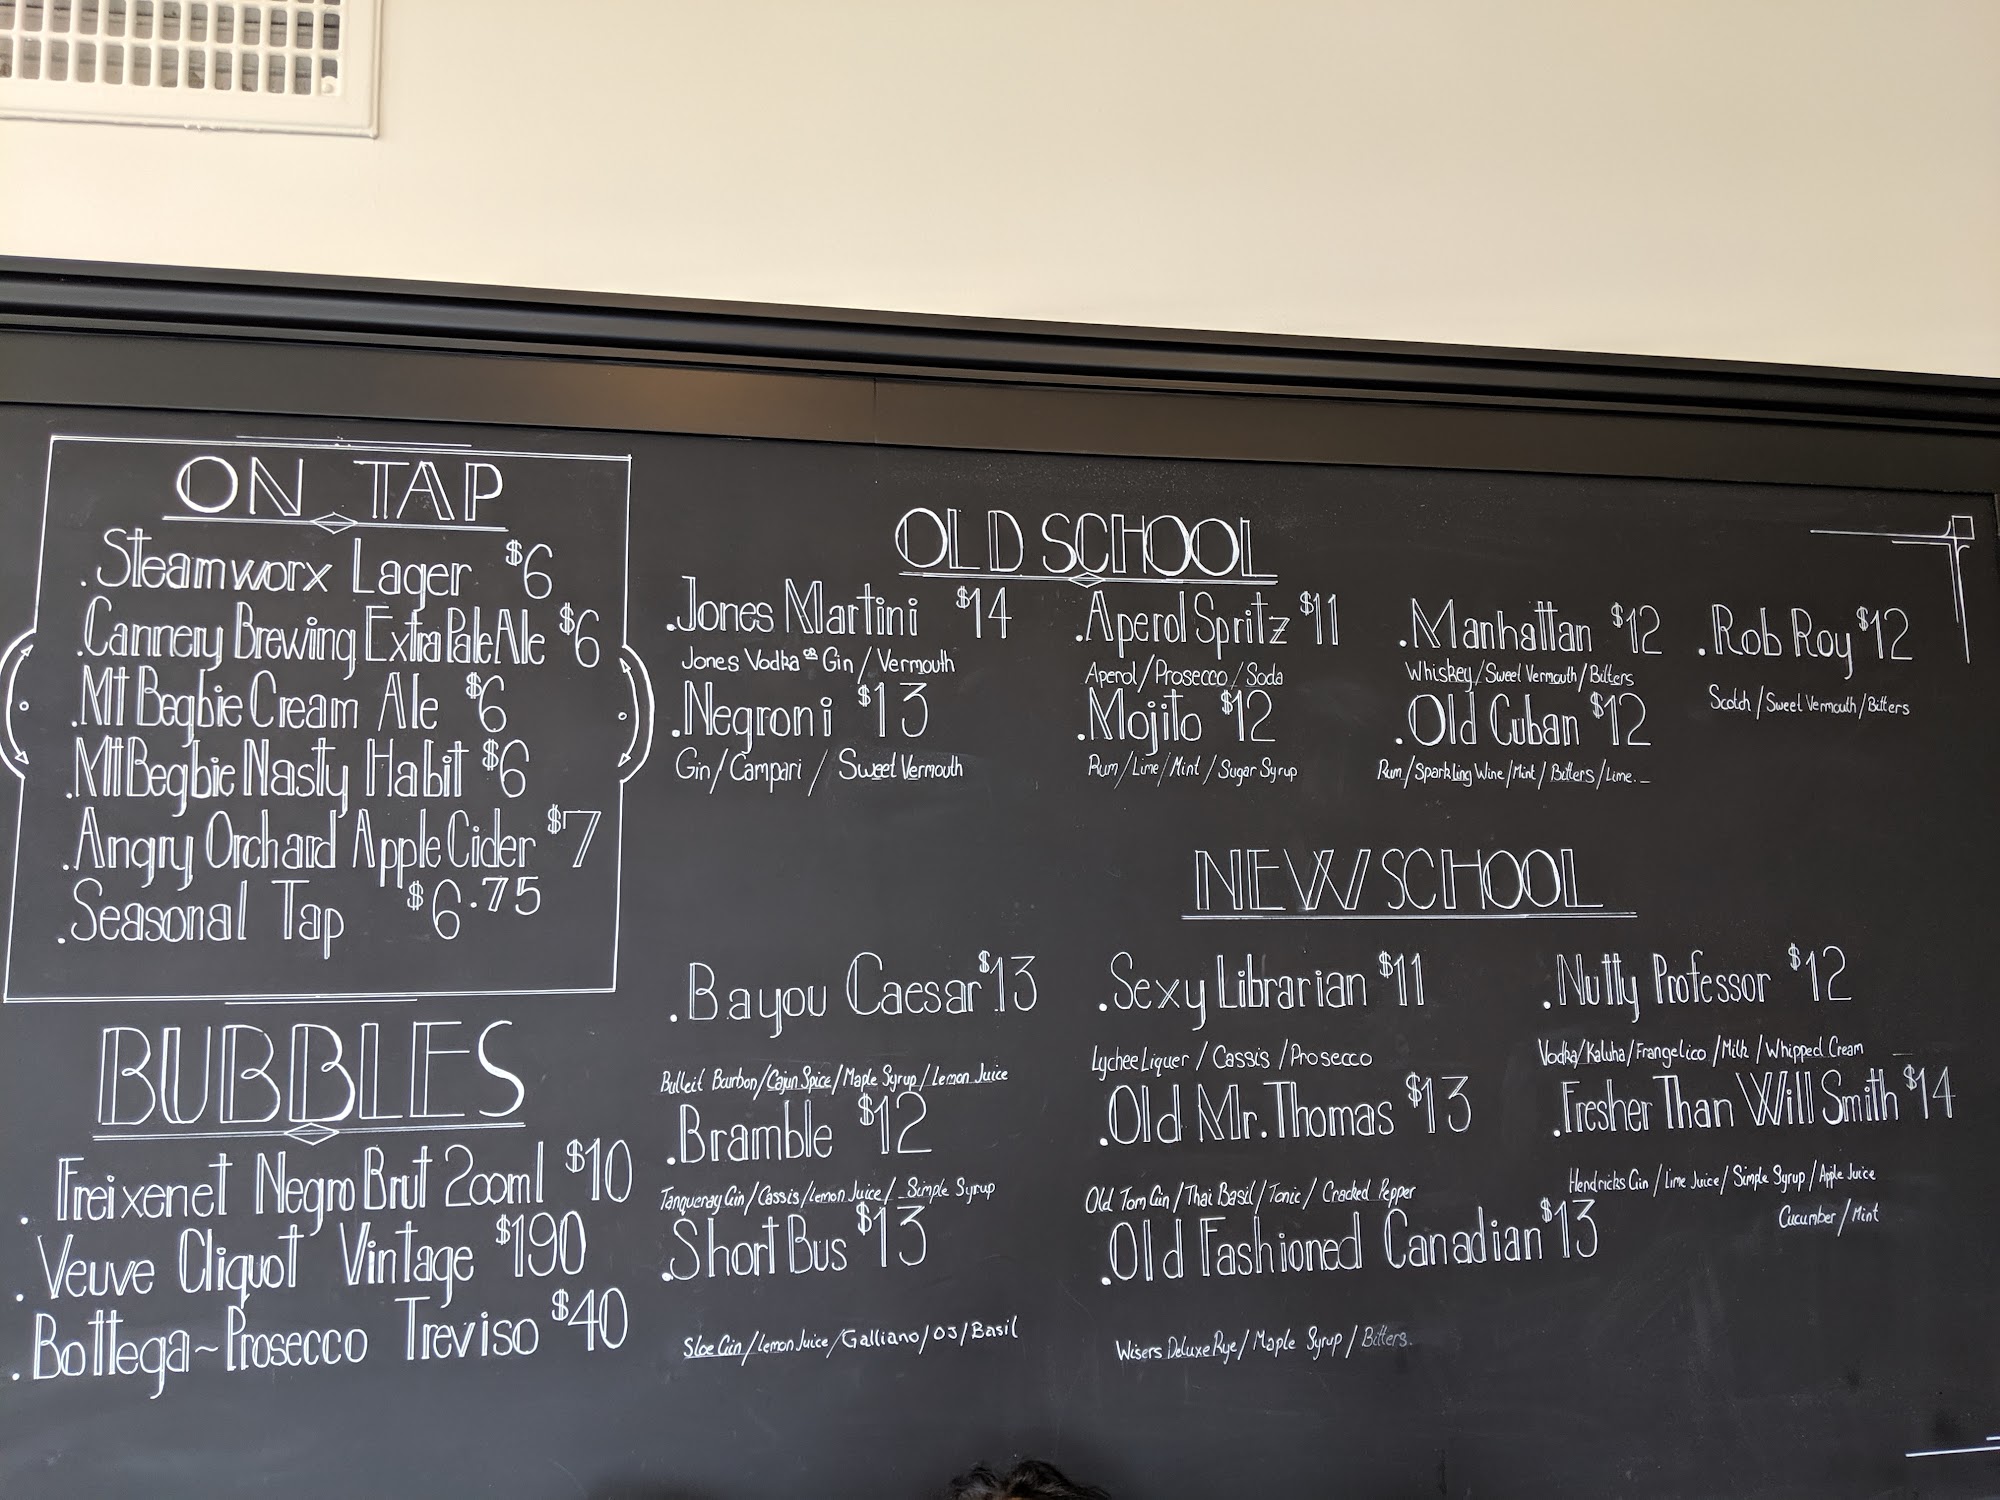 ON TAP
.Steamworx Lager $6
.Cannery Brewing Extra Pale Ale $6
.Mt Begbie Cream Ale $6
.Mt Begbie Nasty Habit $6
.Angry Orchard Apple Cider $7
.Seasonal Tap $6.75
BUBBLES
.Freixenet Negro Brut 200ml $10
.Veuve Cliquot Vintage $190
.Bottega~Prosecco Treviso $40
OLD SCHOOL
.Jones Martini $14
Jones Vodka or Gin / Vermouth
.Negroni $13
Gin / Campari / Sweet Vermouth
.Aperol Spritz $11
Aperol / Prosecco / Soda
.Mojito $12
Rum / Lime / Mint / Sugar Syrup
.Manhattan $12
Whiskey / Sweet Vermouth / Bitters
.Old Cuban $12
Rum / Sparkling Wine / Mint / Bitters / Lime._
.Rob Roy $12
Scotch / Sweet Vermouth / Bitters
NEW SCHOOL
.Bayou Caesar $13
Bulleit Bourbon / Cajun Spice / Maple Syrup / Lemon Juice
.Bramble $12
Tanqueray Gin / Cassis / Lemon Juice / Simple Syrup
.Short Bus $13
Sloe Gin / Lemon Juice / Galliano / OJ / Basil
.Sexy Librarian $11
Lychee Liquer / Cassis / Prosecco
.Old Mr. Thomas $13
Old Tom Gin / Thai Basil / Tonic / Cracked Pepper
.Old Fashioned Canadian $13
Wisers Deluxe Rye / Maple Syrup / Bitters.
.Nutty Professor $12
Vodka / Kaluha / Frangelico / Milk / Whipped Cream
.Fresher Than Will Smith $14
Hendricks Gin / Lime Juice / Simple Syrup / Apple Juice
Cucumber / Mint